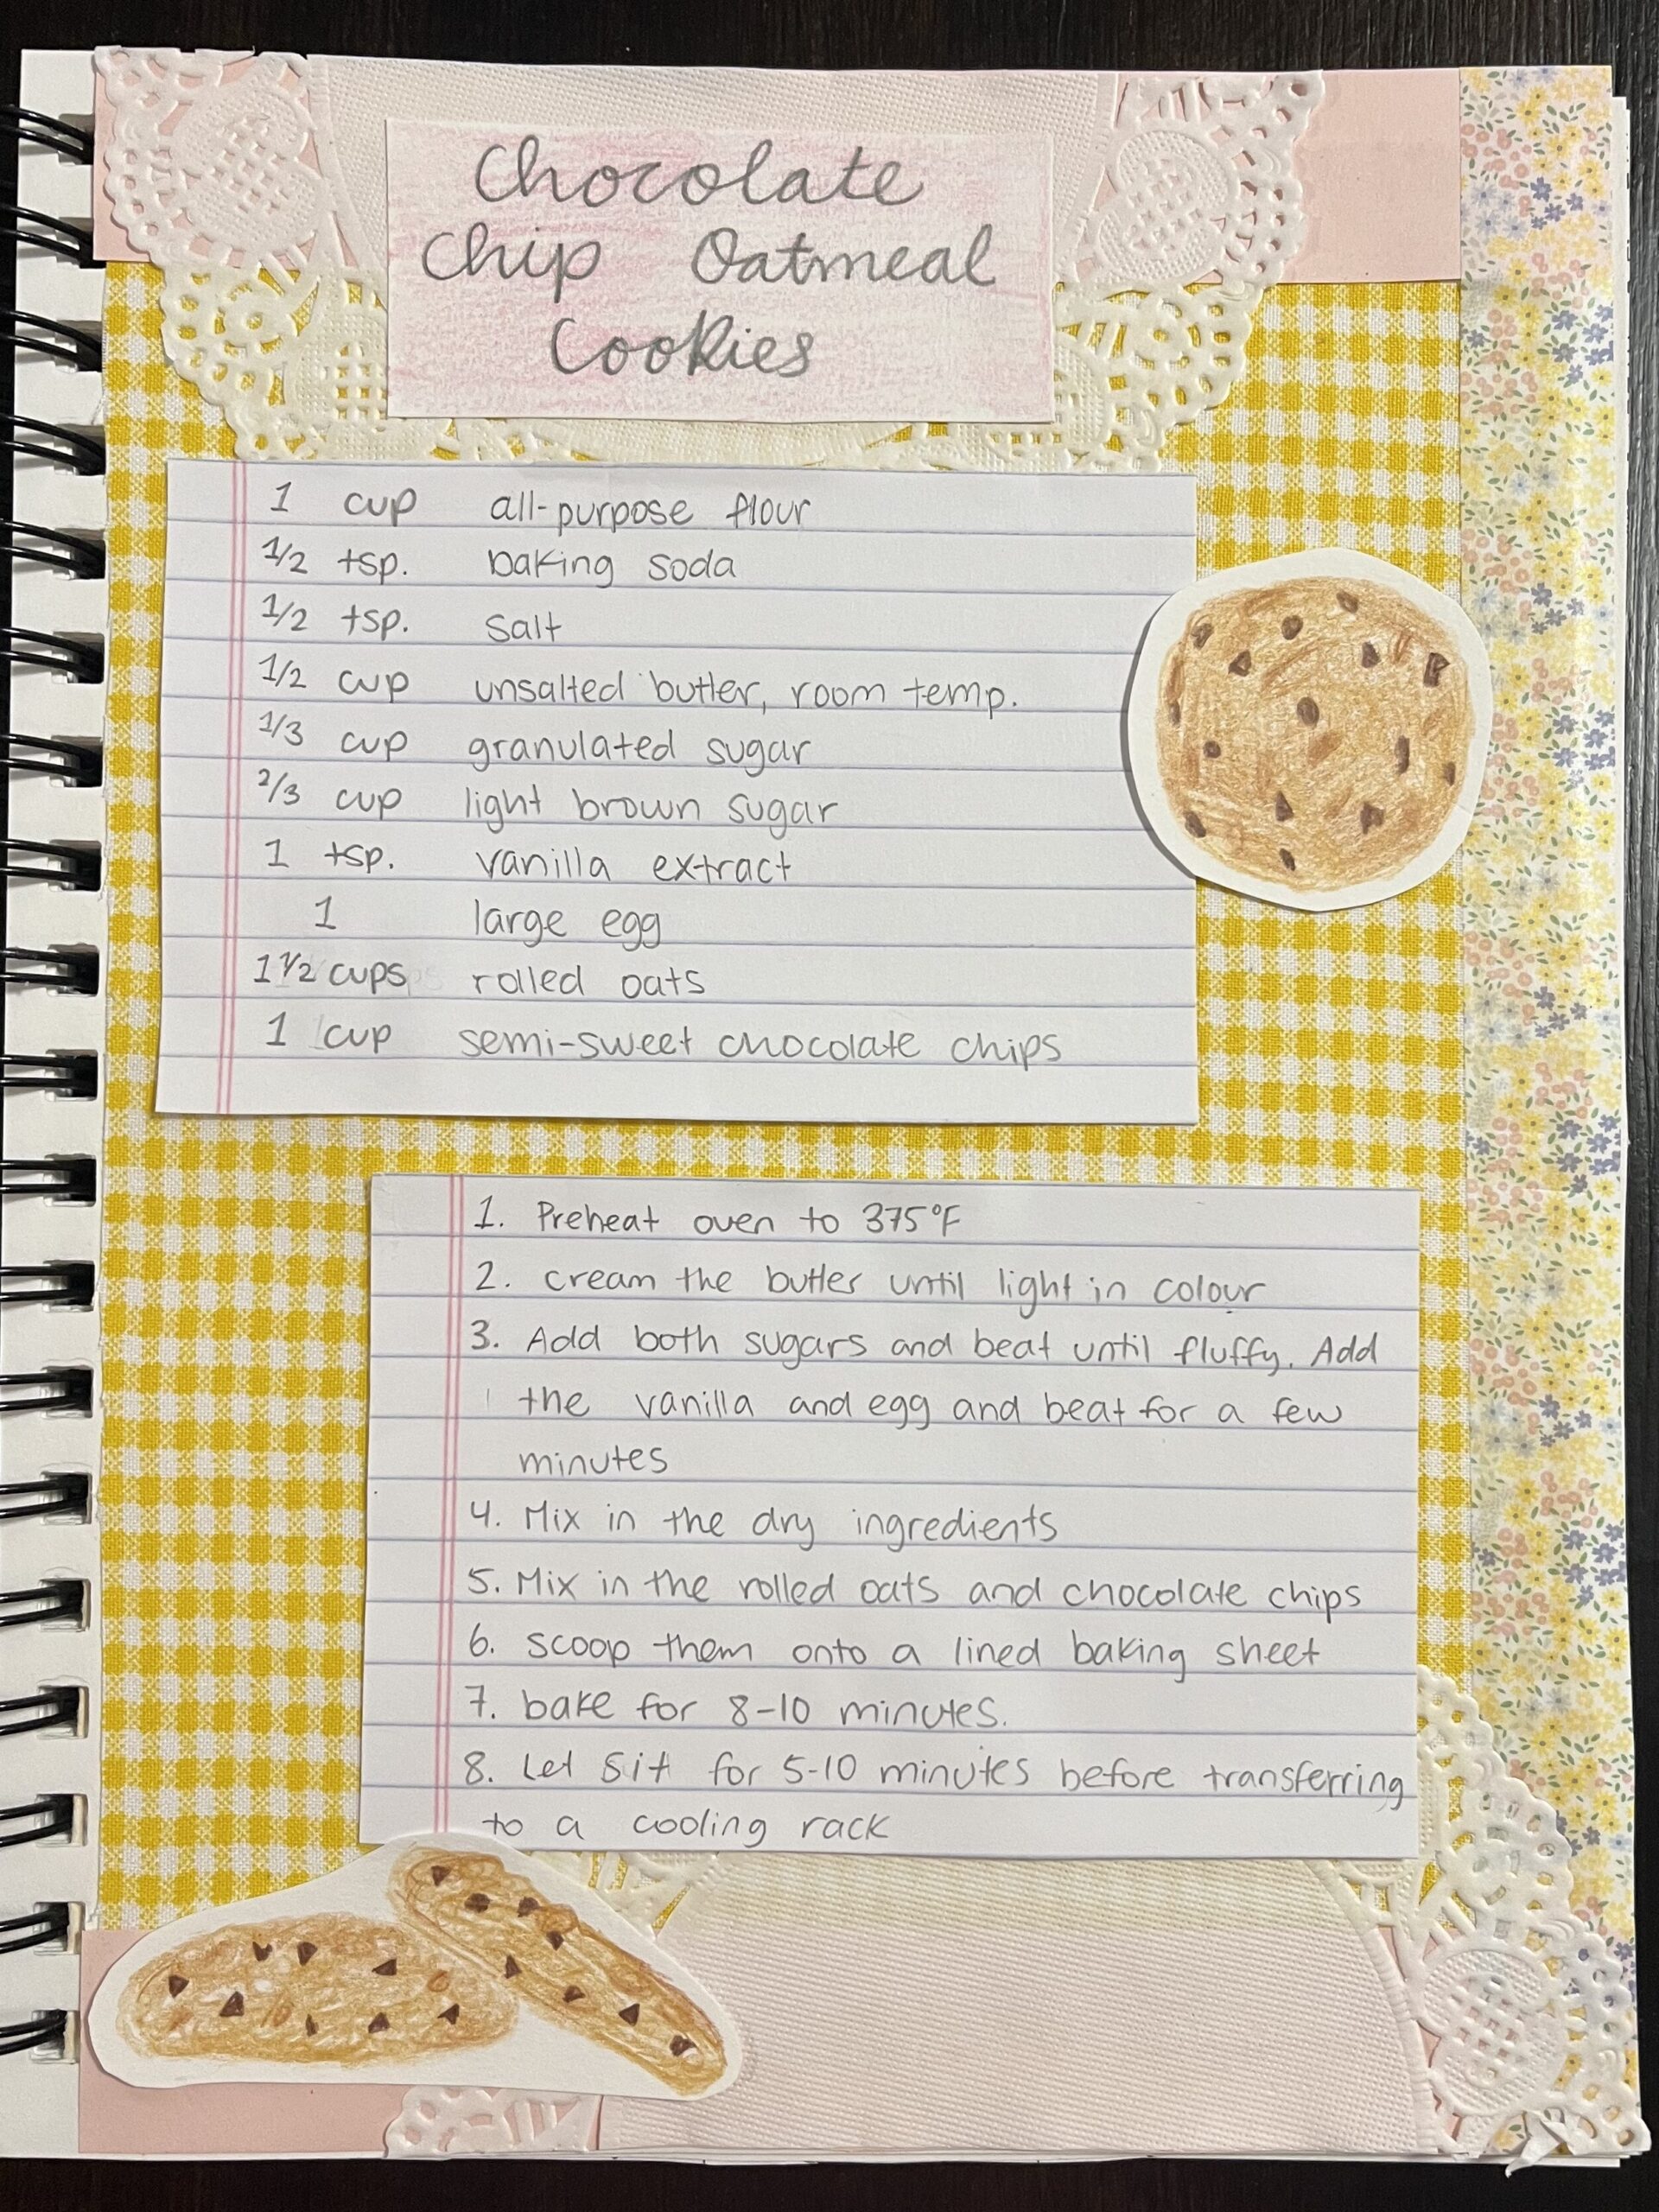 Chocolate
Chip Oatmeal
Cookies
1 cup all-purpose flour
1/2 tsp. baking soda
1/2 tsp. salt
1/2 cup unsalted butter, room temp.
1/3 cup granulated sugar
2/3 cup light brown sugar
1 tsp. vanilla extract
1 large egg
1 1/2 cups rolled oats
1 cup semi-sweet chocolate chips
1. Preheat oven to 375°F
2. cream the butter until light in colour
3. Add both sugars and beat until fluffy. Add
the vanilla and egg and beat for a few
minutes
4. Mix in the dry ingredients
5. Mix in the rolled oats and chocolate chips
6. scoop them onto a lined baking sheet
7. bake for 8-10 minutes.
8. Let sit for 5-10 minutes before transferring
to a cooling rack